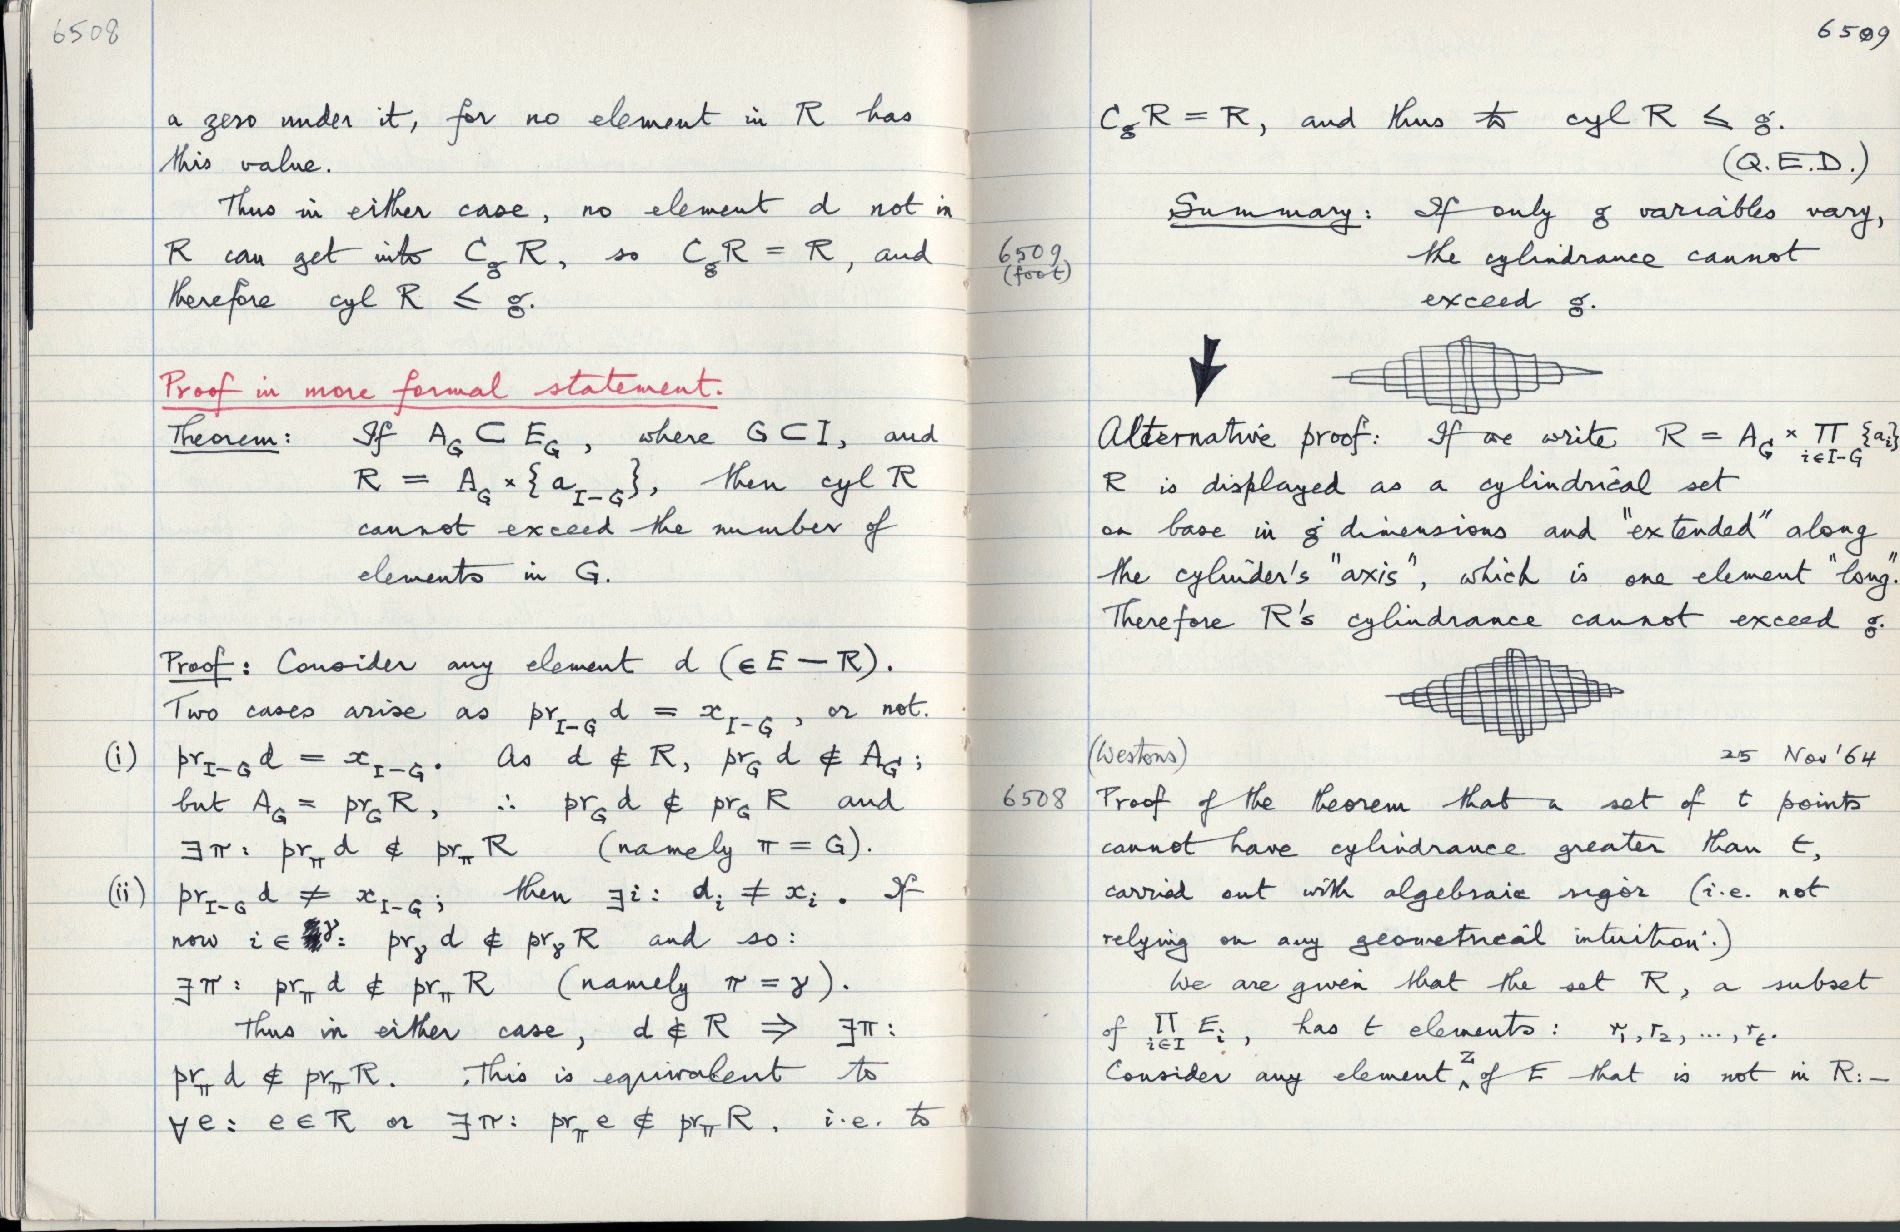 6508
a zero under it, for no element in R has
this value.
Thus in either case, no element d not in
R can get into C_g R, so C_g R = R, and
therefore cyl R ≤ g.
Proof in more formal statement.
Theorem: If A_G ⊂ E_G, where G ⊂ I, and
R = A_G × {a_{I-G}}, then cyl R
cannot exceed the number of
elements in G.
Proof: Consider any element d (∈ E — R).
Two cases arise as pr_{I-G} d = x_{I-G}, or not.
(i) pr_{I-G} d = x_{I-G}. As d ∉ R, pr_G d ∉ A_G;
but A_G = pr_G R, ∴ pr_G d ∉ pr_G R and
∃π: pr_π d ∉ pr_π R (namely π = G).
(ii) pr_{I-G} d ≠ x_{I-G}; then ∃i: d_i ≠ x_i. If
now i ∈ γ: pr_γ d ∉ pr_γ R and so:
∃π: pr_π d ∉ pr_π R (namely π = γ).
Thus in either case, d ∉ R ⇒ ∃π:
pr_π d ∉ pr_π R. This is equivalent to
∀e: e ∈ R or ∃π: pr_π e ∉ pr_π R, i.e. to
6509
C_g R = R, and thus to cyl R ≤ g.
(Q.E.D.)
Summary: If only g variables vary,
6509 (foot)
the cylindrance cannot
exceed g.
Alternative proof: If we write R = A_G × ∏_{i∈I-G} {a_i}
R is displayed as a cylindrical set
on base in g dimensions and "extended" along
the cylinder's "axis", which is one element "long".
Therefore R's cylindrance cannot exceed g.
(Westons) 25 Nov '64
6508 Proof of the theorem that a set of t points
cannot have cylindrance greater than t,
carried out with algebraic rigor (i.e. not
relying on any geometrical intuition.)
We are given that the set R, a subset
of ∏_{i∈I} E_i, has t elements: r_1, r_2, ..., r_t.
Consider any element z of E that is not in R:—